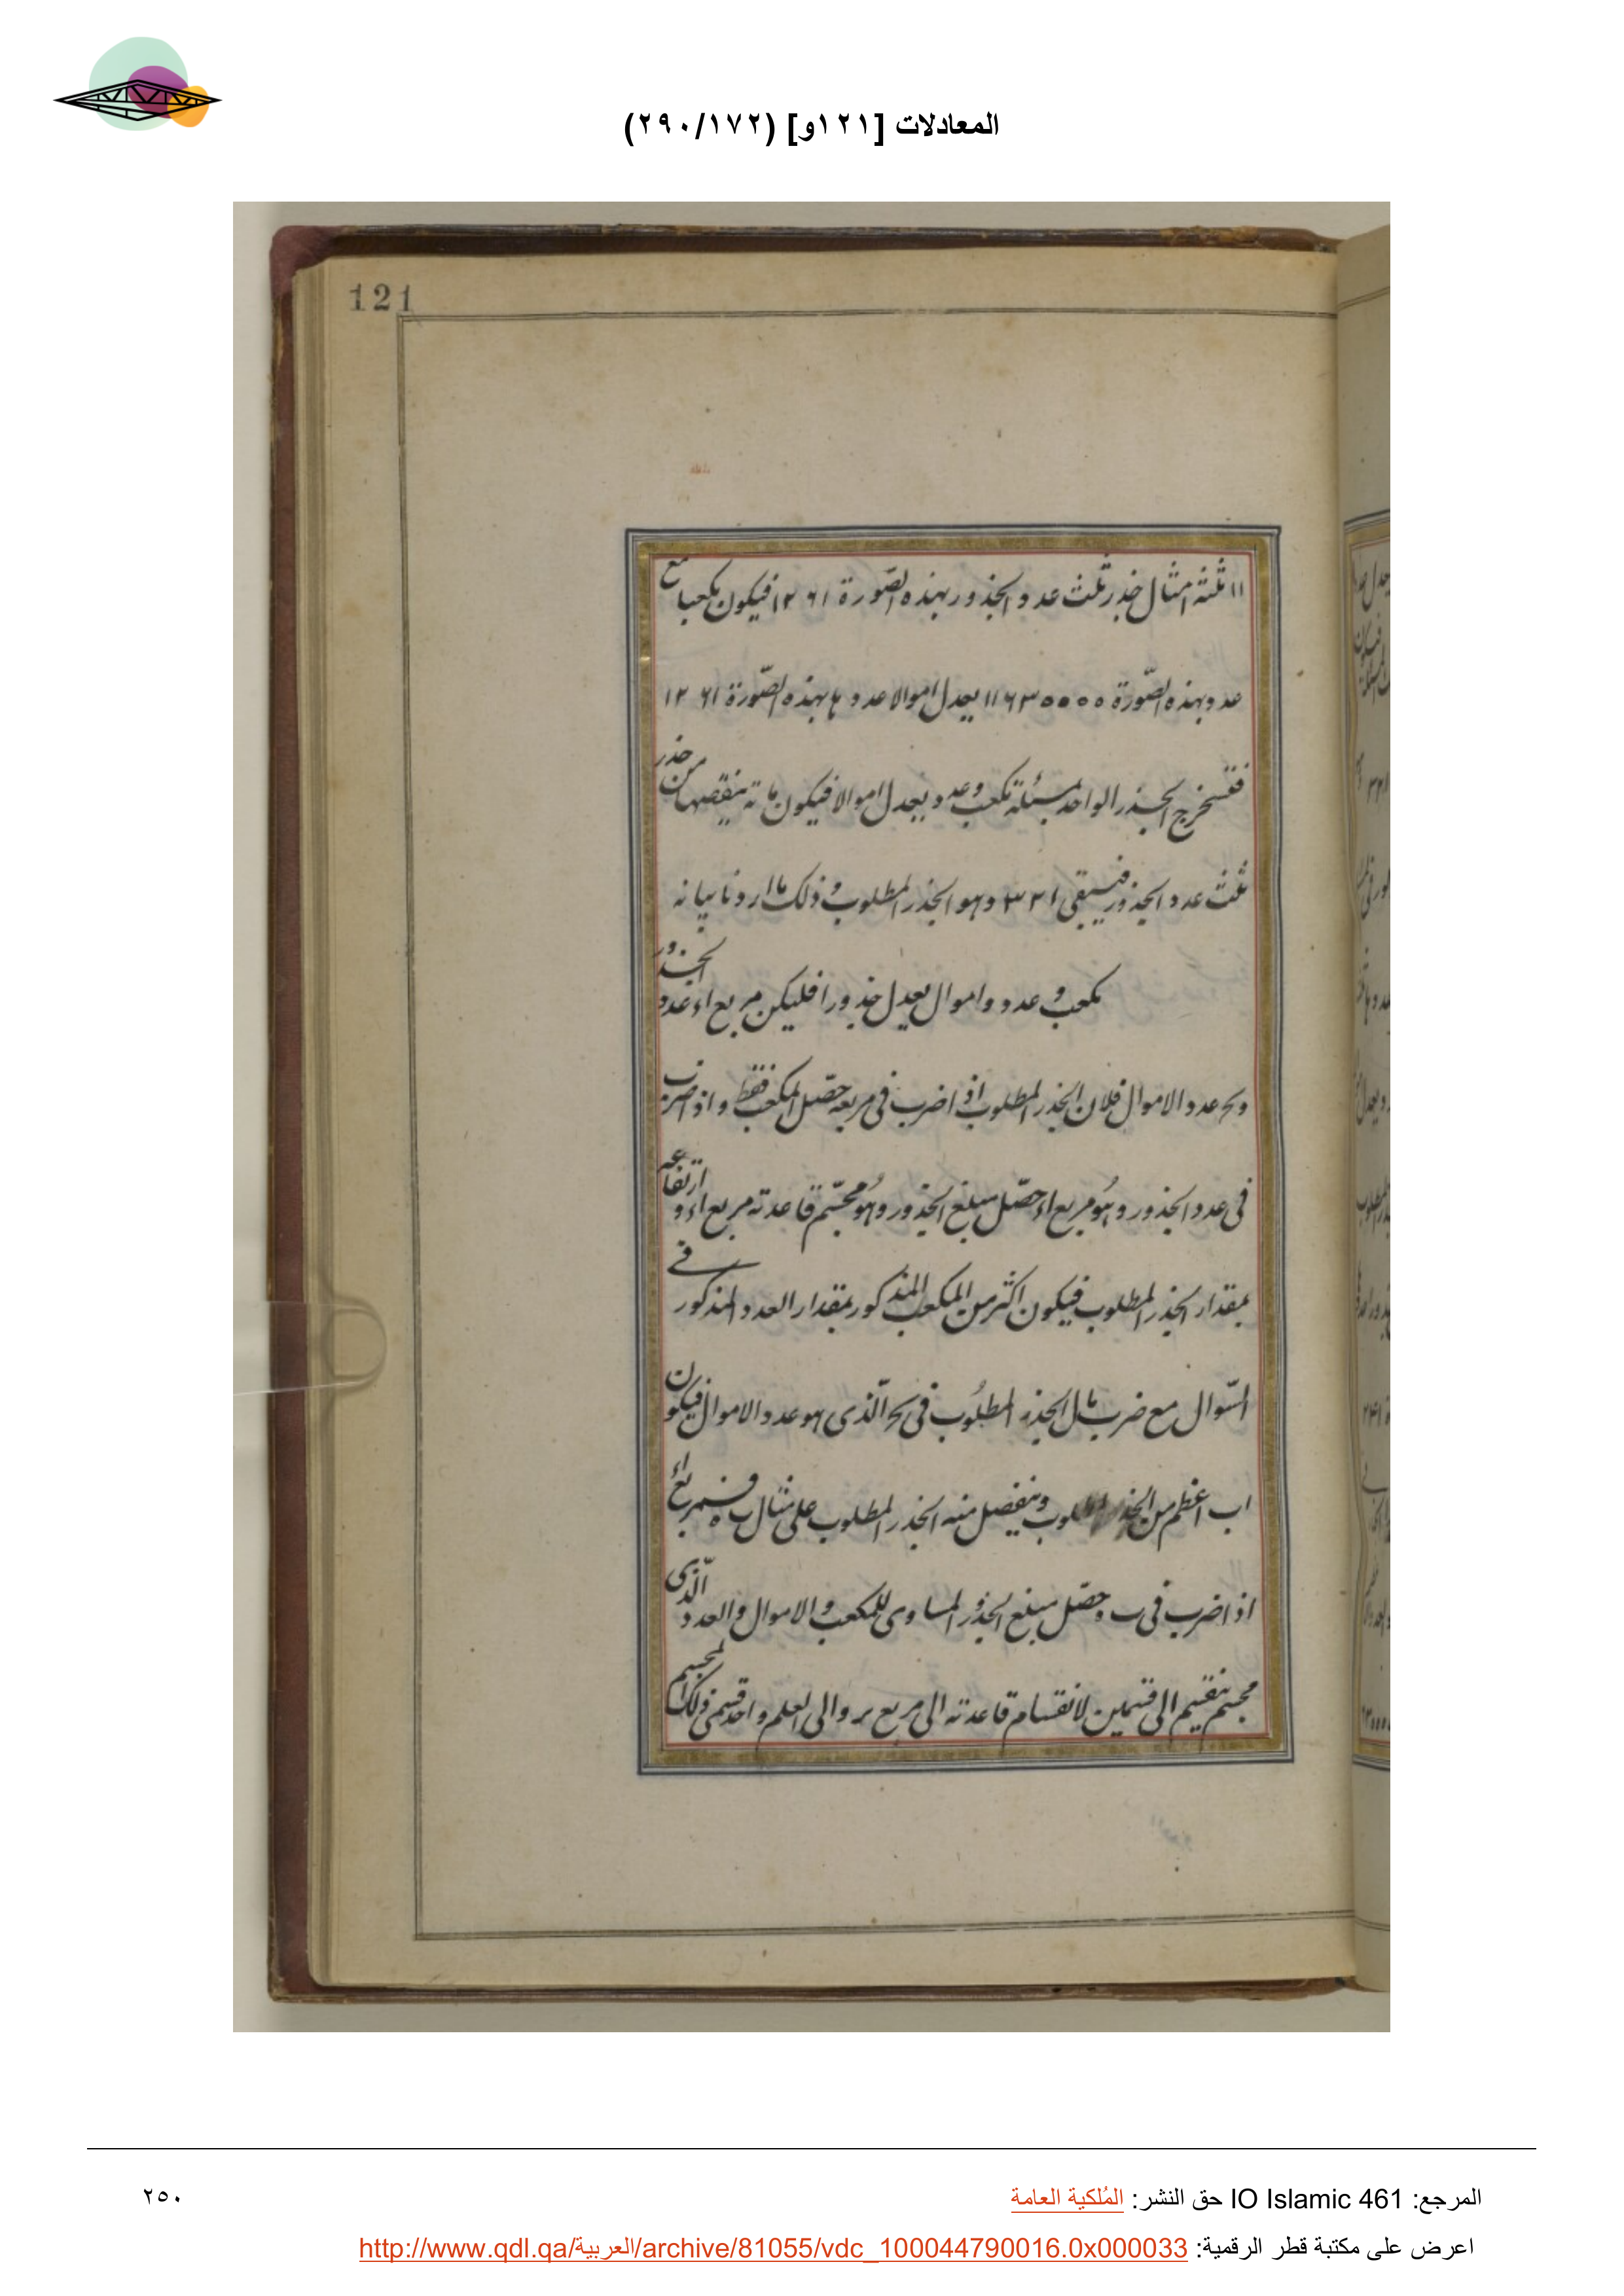 المعادلات [١٢١و] (٢٩٠/١٧٢)
121
١١ ثلثة امثال جذر ثلث عدد الجذور بهذه الصّورة ١٢٦١ فيكون مكعبا مع
عدد بهذه الصّورة ١١٦٣٥٥٥٥ يعدل اموالا عددها بهذه الصّورة ١٢٦١
فنستخرج الجذر الواحد بمسئلة مكعب وعدد يعدل اموالا فيكون ما ته ينقصها من جذر
ثلث عدد الجذور فيبقى ٣٢١ وهو الجذر المطلوب وذلك ما اردنا بيانه
مكعب و عدد و اموال يعدل جذورا فليكن مربع اء عدد الجذور
و بح عدد الاموال فلان الجذر المطلوب اذا ضرب فى مربعه حصّل المكعب فقط و اذا ضرب
فى عدد الجذور و هُو مربع اء حصّل مبلغ الجذور و هُو مجسّم قاعدته مربع اء و ارتفاعه
بمقدار الجذر المطلوب فيكون اكثر من المكعب المذكور بمقدار العدد المذكور فے
السّوال مع ضرب مال الجذر المطلُوب فى بح الّذى هو عدد الاموال فيكون
اب اعظم من الجذر المطلوب و ينفصل منه الجذر المطلوب على مثال ب ه فمربع اء
اذا ضرب فى ب ه حصّل مبلغ الجذور المساوى للمكعب و الاموال و العدد الّذى
مجسم ينقسم الى قسمين لانقسام قاعدته الى مربع بر و الى العلم و احد قسمى ذلك المجسم
المرجع: IO Islamic 461 حق النشر: المُلكية العامة
٢٥٠
اعرض على مكتبة قطر الرقمية: http://www.qdl.qa/العربية/archive/81055/vdc_100044790016.0x000033